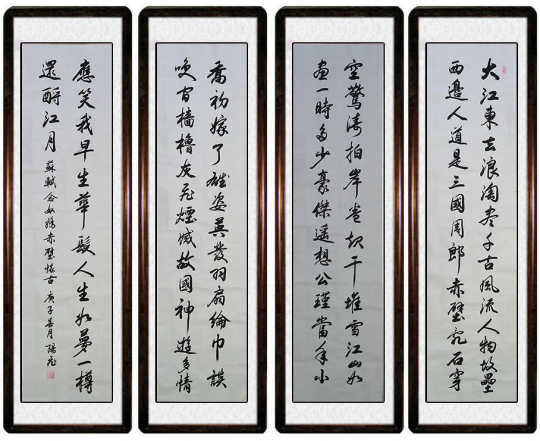 大江東去浪淘盡千古風流人物故壘
西邊人道是三國周郎赤壁亂石穿
空驚濤拍岸卷起千堆雪江山如
畫一時多少豪傑遙想公瑾當年小
喬初嫁了雄姿英發羽扇綸巾談
咲間檣櫓灰飛煙滅故國神遊多情
應笑我早生華髮人生如夢一樽
還酹江月 蘇軾念奴嬌赤壁懷古 庚子